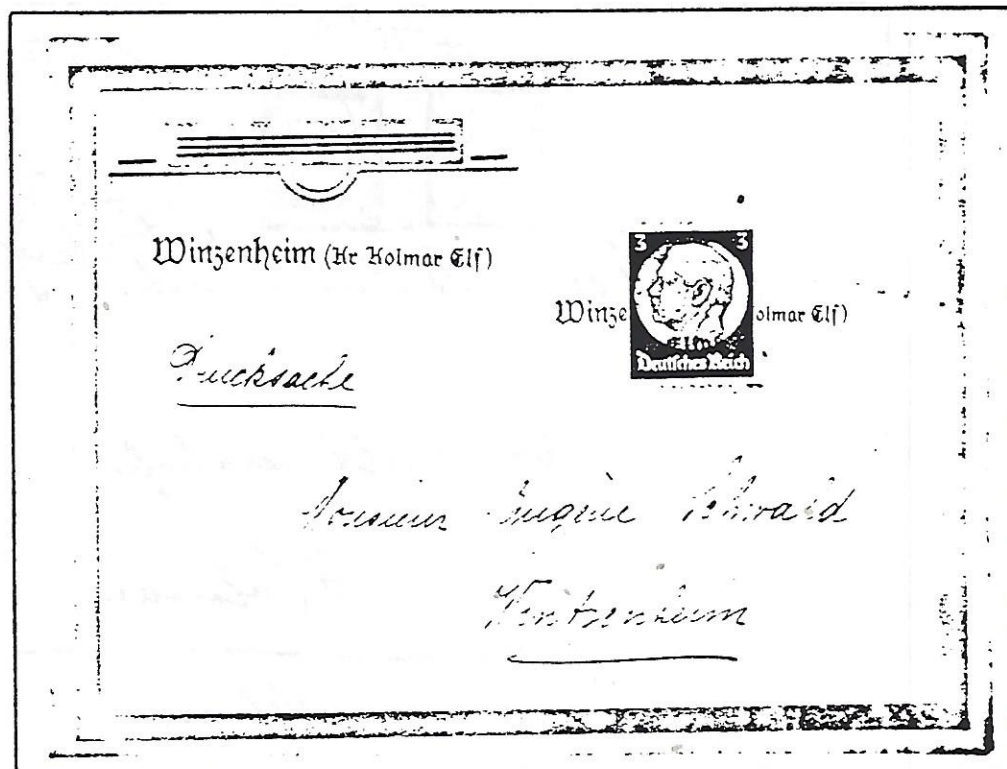 Winzenheim (Kr Kolmar Els)
3 3
Winze olmar Els)
Deutsches Reich
Drucksache
Monsieur Eugène Schwald
Wintzenheim